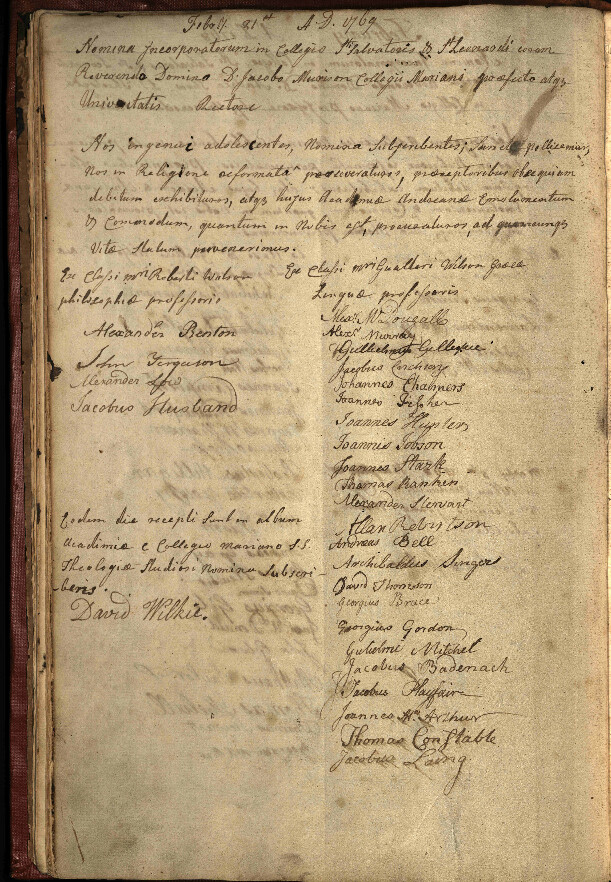 Febry. 21st A.D. 1769
Nomina Incorporatorum in Collegio Sti Salvatoris & Sti Leonardi coram
Reverendo Domino D. Jacobo Murison Collegii Mariani præfecto atqz
Universitatis Rectore
Nos ingenui adolescentes, Nomina Subscribentes, Sancte pollicemur,
Nos in Religione reformata perseveraturos, præceptoribus obsequium
debitum exhibituros, atqz hujus Academiæ Andreanæ Emolumentum
& Commodum, quantum in Nobis est, procuraturos, ad quemcunqz
Vitæ statum pervenerimus.
Ex Classi mri Roberti Watson
philosophiæ professoris
Alexander Berton
John Ferguson
Alexander Low
Jacobus Husband
Eodem die recepti sunt in album
Academiæ e Collegio mariano S.S.
Theologiæ Studiosi Nomina Subscri
bentes.
David Wilkie.
Ex Classi mri Gualteri Wilson Græcæ
Linguæ professoris
Alexr. McDougall
Alexr. Murray
Gullielmus Gillespie
Jacobus
Johannes Chalmers
Joannes Fisher
Joannes Hunter
Joannes Jobson
Joannes Stark
Thomas Rankin
Alexander Stewart
Allan Robertson
Andreas Bell
Archibaldus Singers
David Thomson
Georgius Bruce
Georgius Gordon
Gulielmus Mitchel
Jacobus Badenach
Jacobus Playfair
Joannes McArthur
Thomas Constable
Jacobus Laing